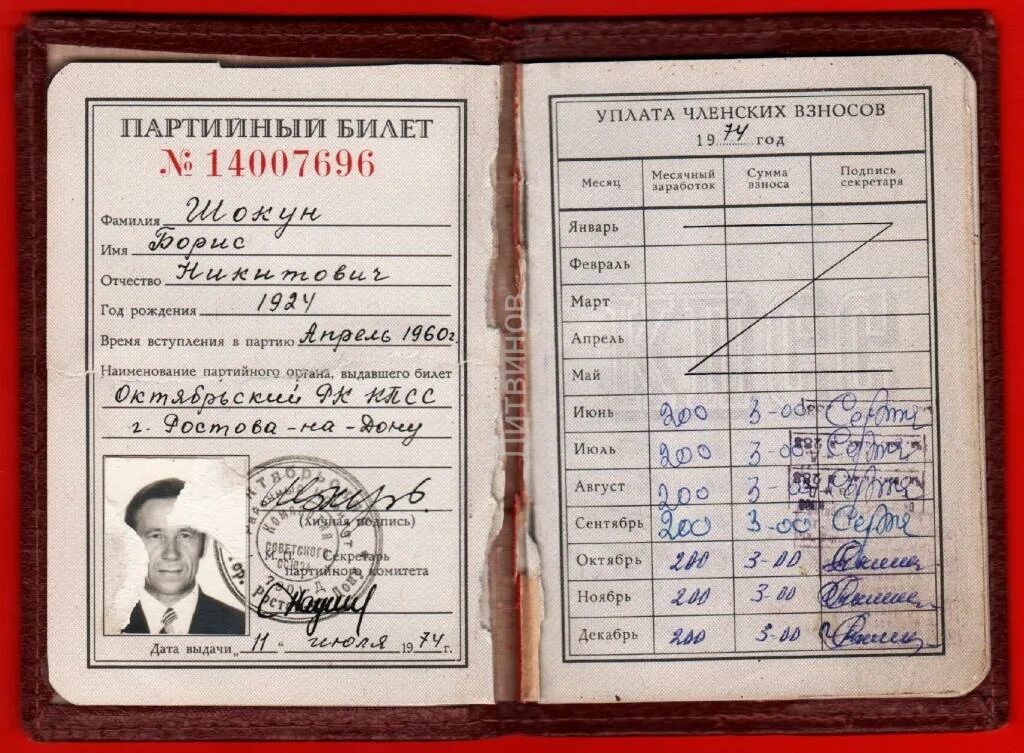 ПАРТИЙНЫЙ БИЛЕТ
№ 14007696
Фамилия Шокун
Имя Борис
Отчество Никитович
Год рождения 1924
Время вступления в партию Апрель 1960г.
Наименование партийного органа, выдавшего билет
Октябрьский РК КПСС
г. Ростова-на-Дону
(личная подпись)
М. П. Секретарь
партийного комитета
Дата выдачи „11“ июля 1974 г.
СОВЕТСКОГО
СОЮЗА
УПЛАТА ЧЛЕНСКИХ ВЗНОСОВ
1974 год
Месяц Месячный заработок Сумма взноса Подпись секретаря
Январь
Февраль
Март
Апрель
Май
Июнь 200 3-00
Июль 200 3-00
Август 200 3-00
Сентябрь 200 3-00
Октябрь 200 3-00
Ноябрь 200 3-00
Декабрь 200 3-00
ЛИТВИНОВ